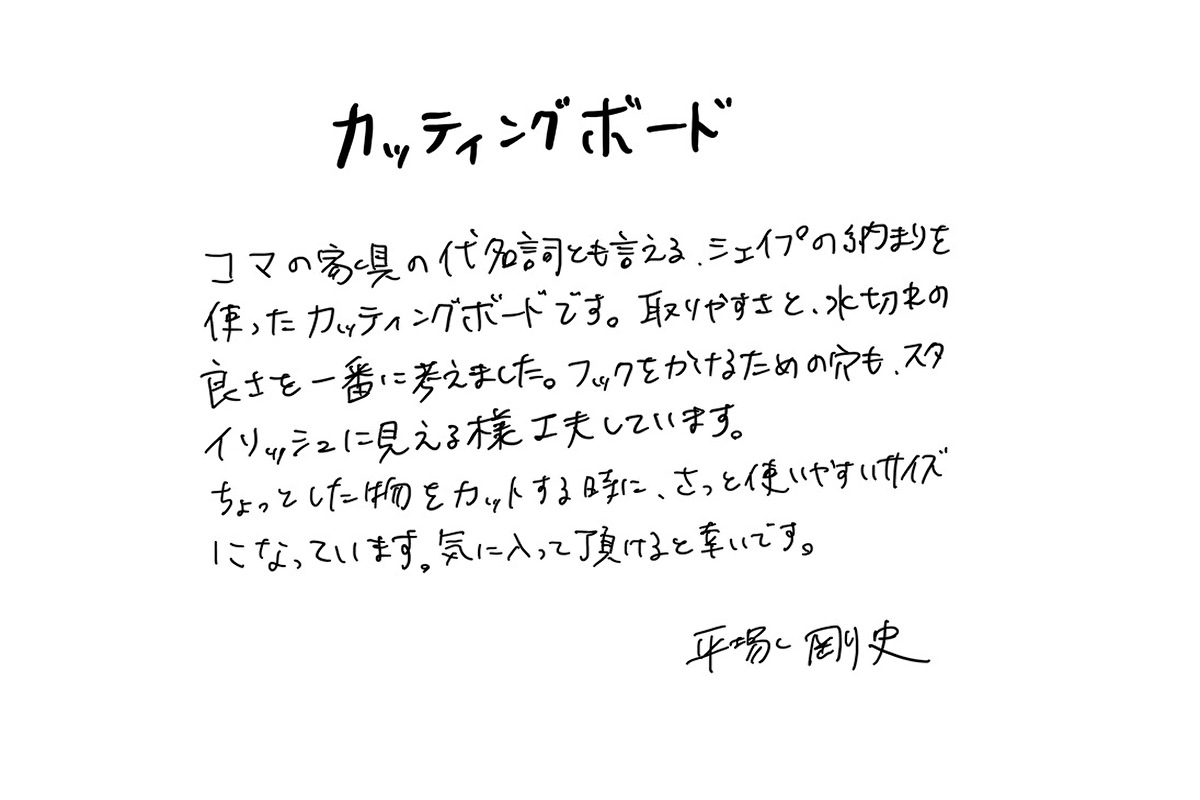 カッティングボード
コマの家具の代名詞とも言える、シェイプの納まりを
使ったカッティングボードです。取りやすさと、水切れの
良さを一番に考えました。フックをかけるための穴も、スタ
イリッシュに見える様工夫しています。
ちょっとした物をカットする時に、さっと使いやすいサイズ
になっています。気に入って頂けると幸いです。
剛史